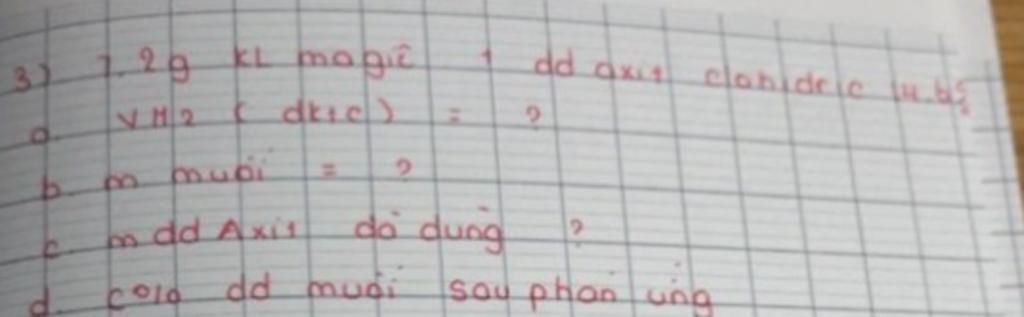 3) 7.2g KL magiê + dd axit clohidric 14.6%
a. VH2 (đktc) = ?
b. m muối = ?
c. m dd Axit đã dùng ?
d. C% dd muối sau phản ứng